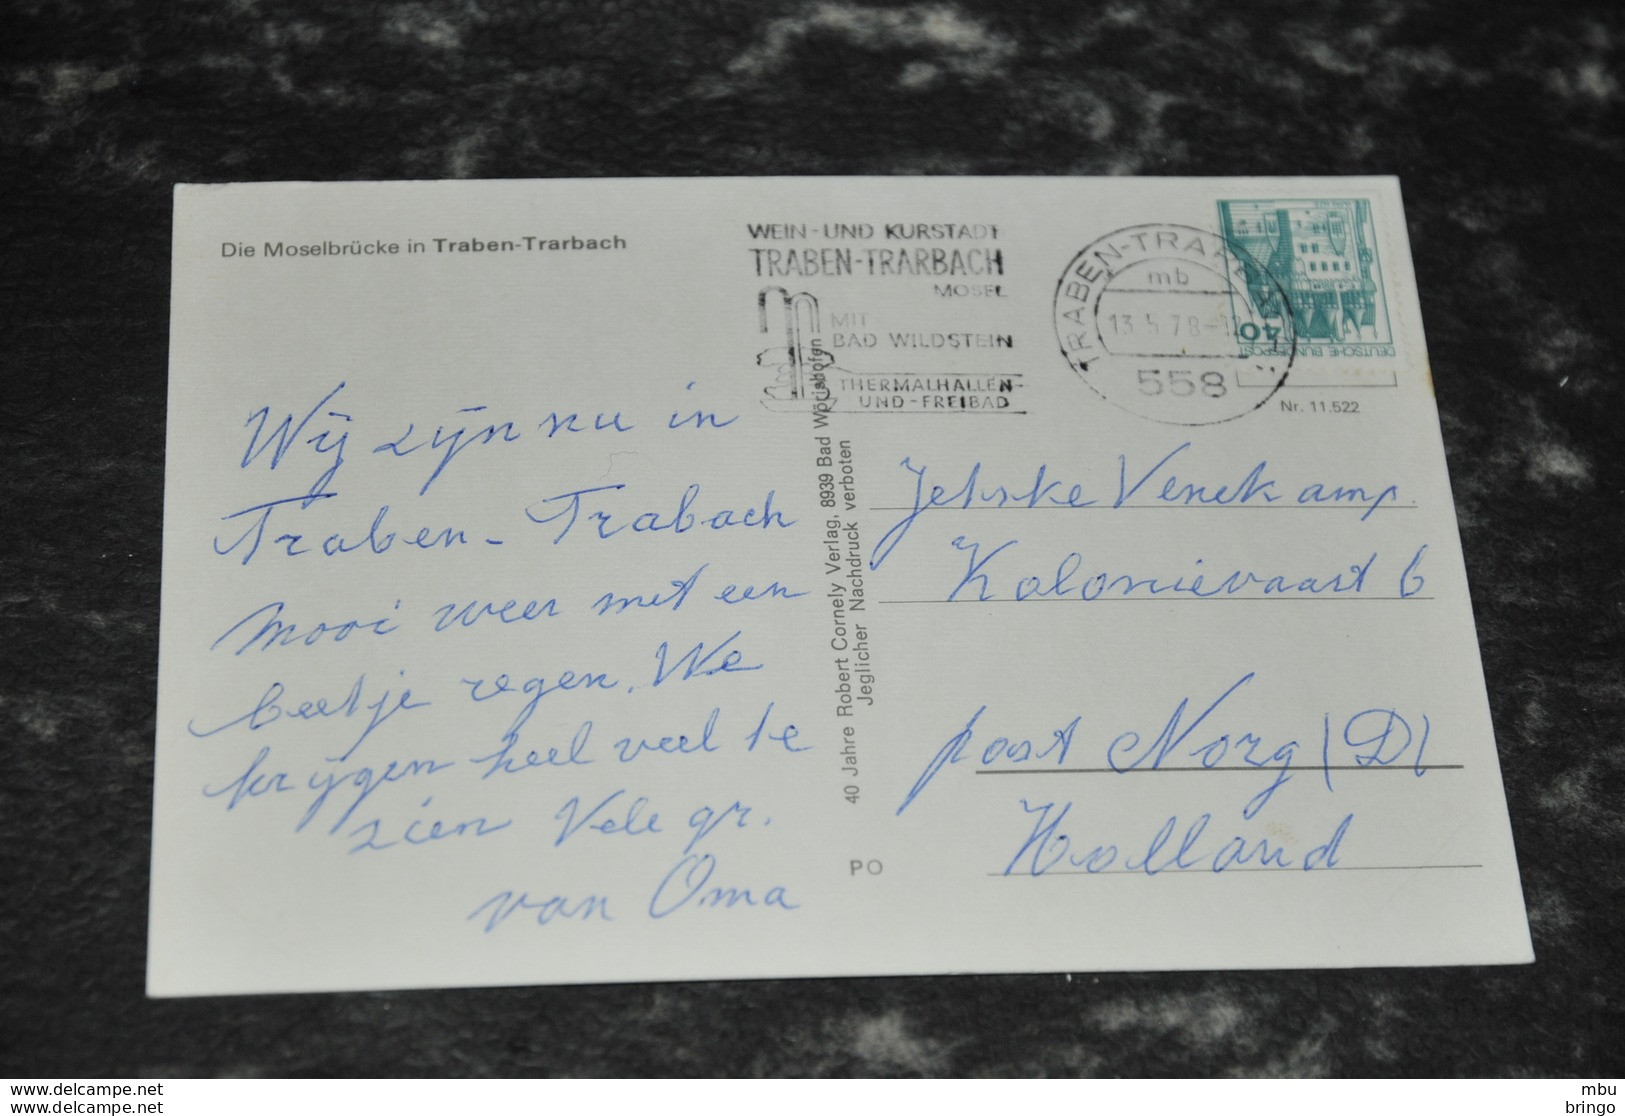 Die Moselbrücke in Traben-Trarbach
WEIN-UND KURSTADT
TRABEN-TRARBACH
MOSEL
MIT
BAD WILDSTEIN
THERMALHALLEN-
UND-FREIBAD
TRABEN-TRARBACH
mb
13.5.78-
558
40
DEUTSCHE BUNDESPOST
Nr. 11.522
Wij zijn nu in
Traben-Trabach
mooi weer met een
beetje regen. We
krijgen heel veel te
zien Vele gr.
van Oma
40 Jahre Robert Cornely Verlag, 8939 Bad Wörishofen
Jeglicher Nachdruck verboten
PO
Jetske Venekamp.
Kolonievaart 6
post Norg (D)
Holland
www.delcampe.net
www.delcampe.com
mbu
bringo